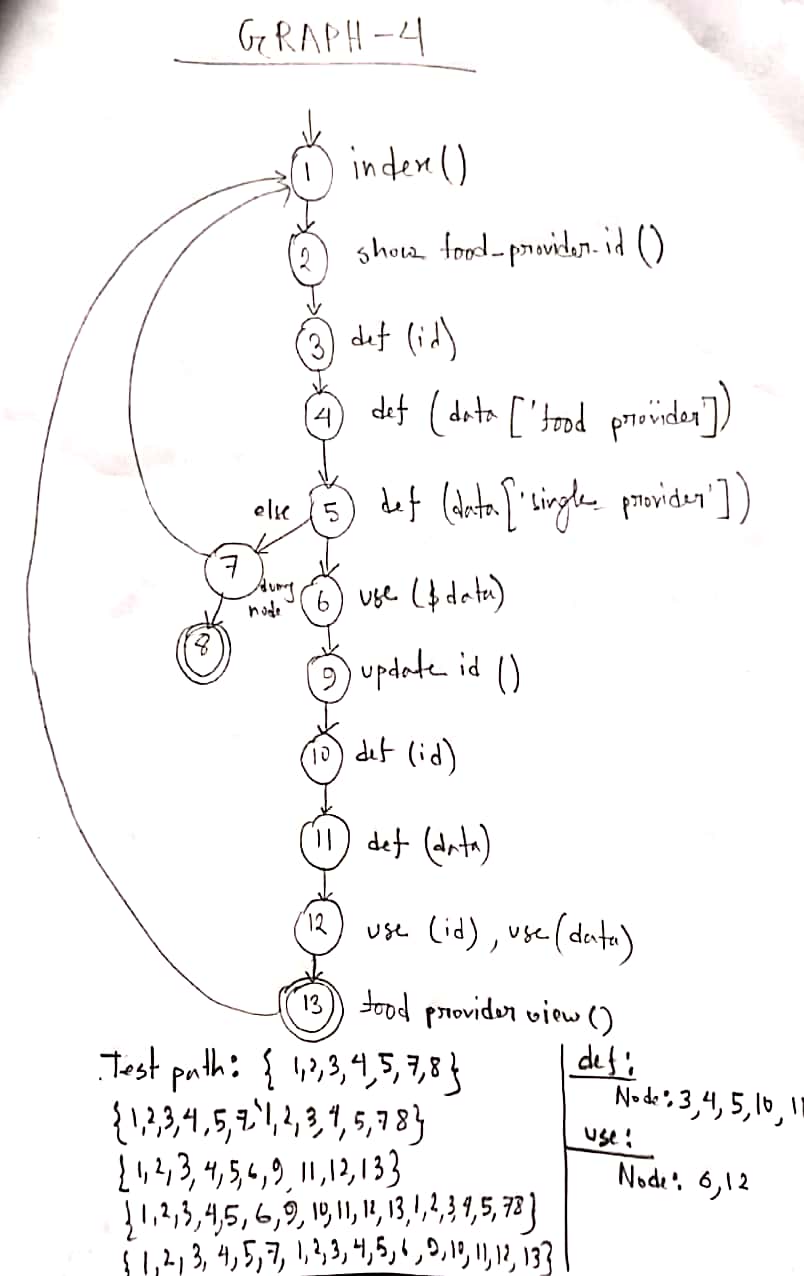 GRAPH-4
1 index()
2 show food-provider-id ()
3 def (id)
4 def (data ['food provider'])
else 5 def (data['single provider'])
7 dumy node 6 use ($data)
8
9 update id ()
10 def (id)
11 def (data)
12 use (id), use(data)
13 food provider view ()
Test path: { 1,2,3,4,5,7,8}
{1,2,3,4,5,7,1,2,3,4,5,7 8}
{1,2,3,4,5,6,9,11,12,13}
{1,2,3,4,5,6,9,10,11,12,13,1,2,3 4,5,78}
{1,2,3,4,5,7,1,2,3,4,5,6,9,10,11,12,13}
def:
Node: 3,4,5,10,11
use:
Node: 6,12